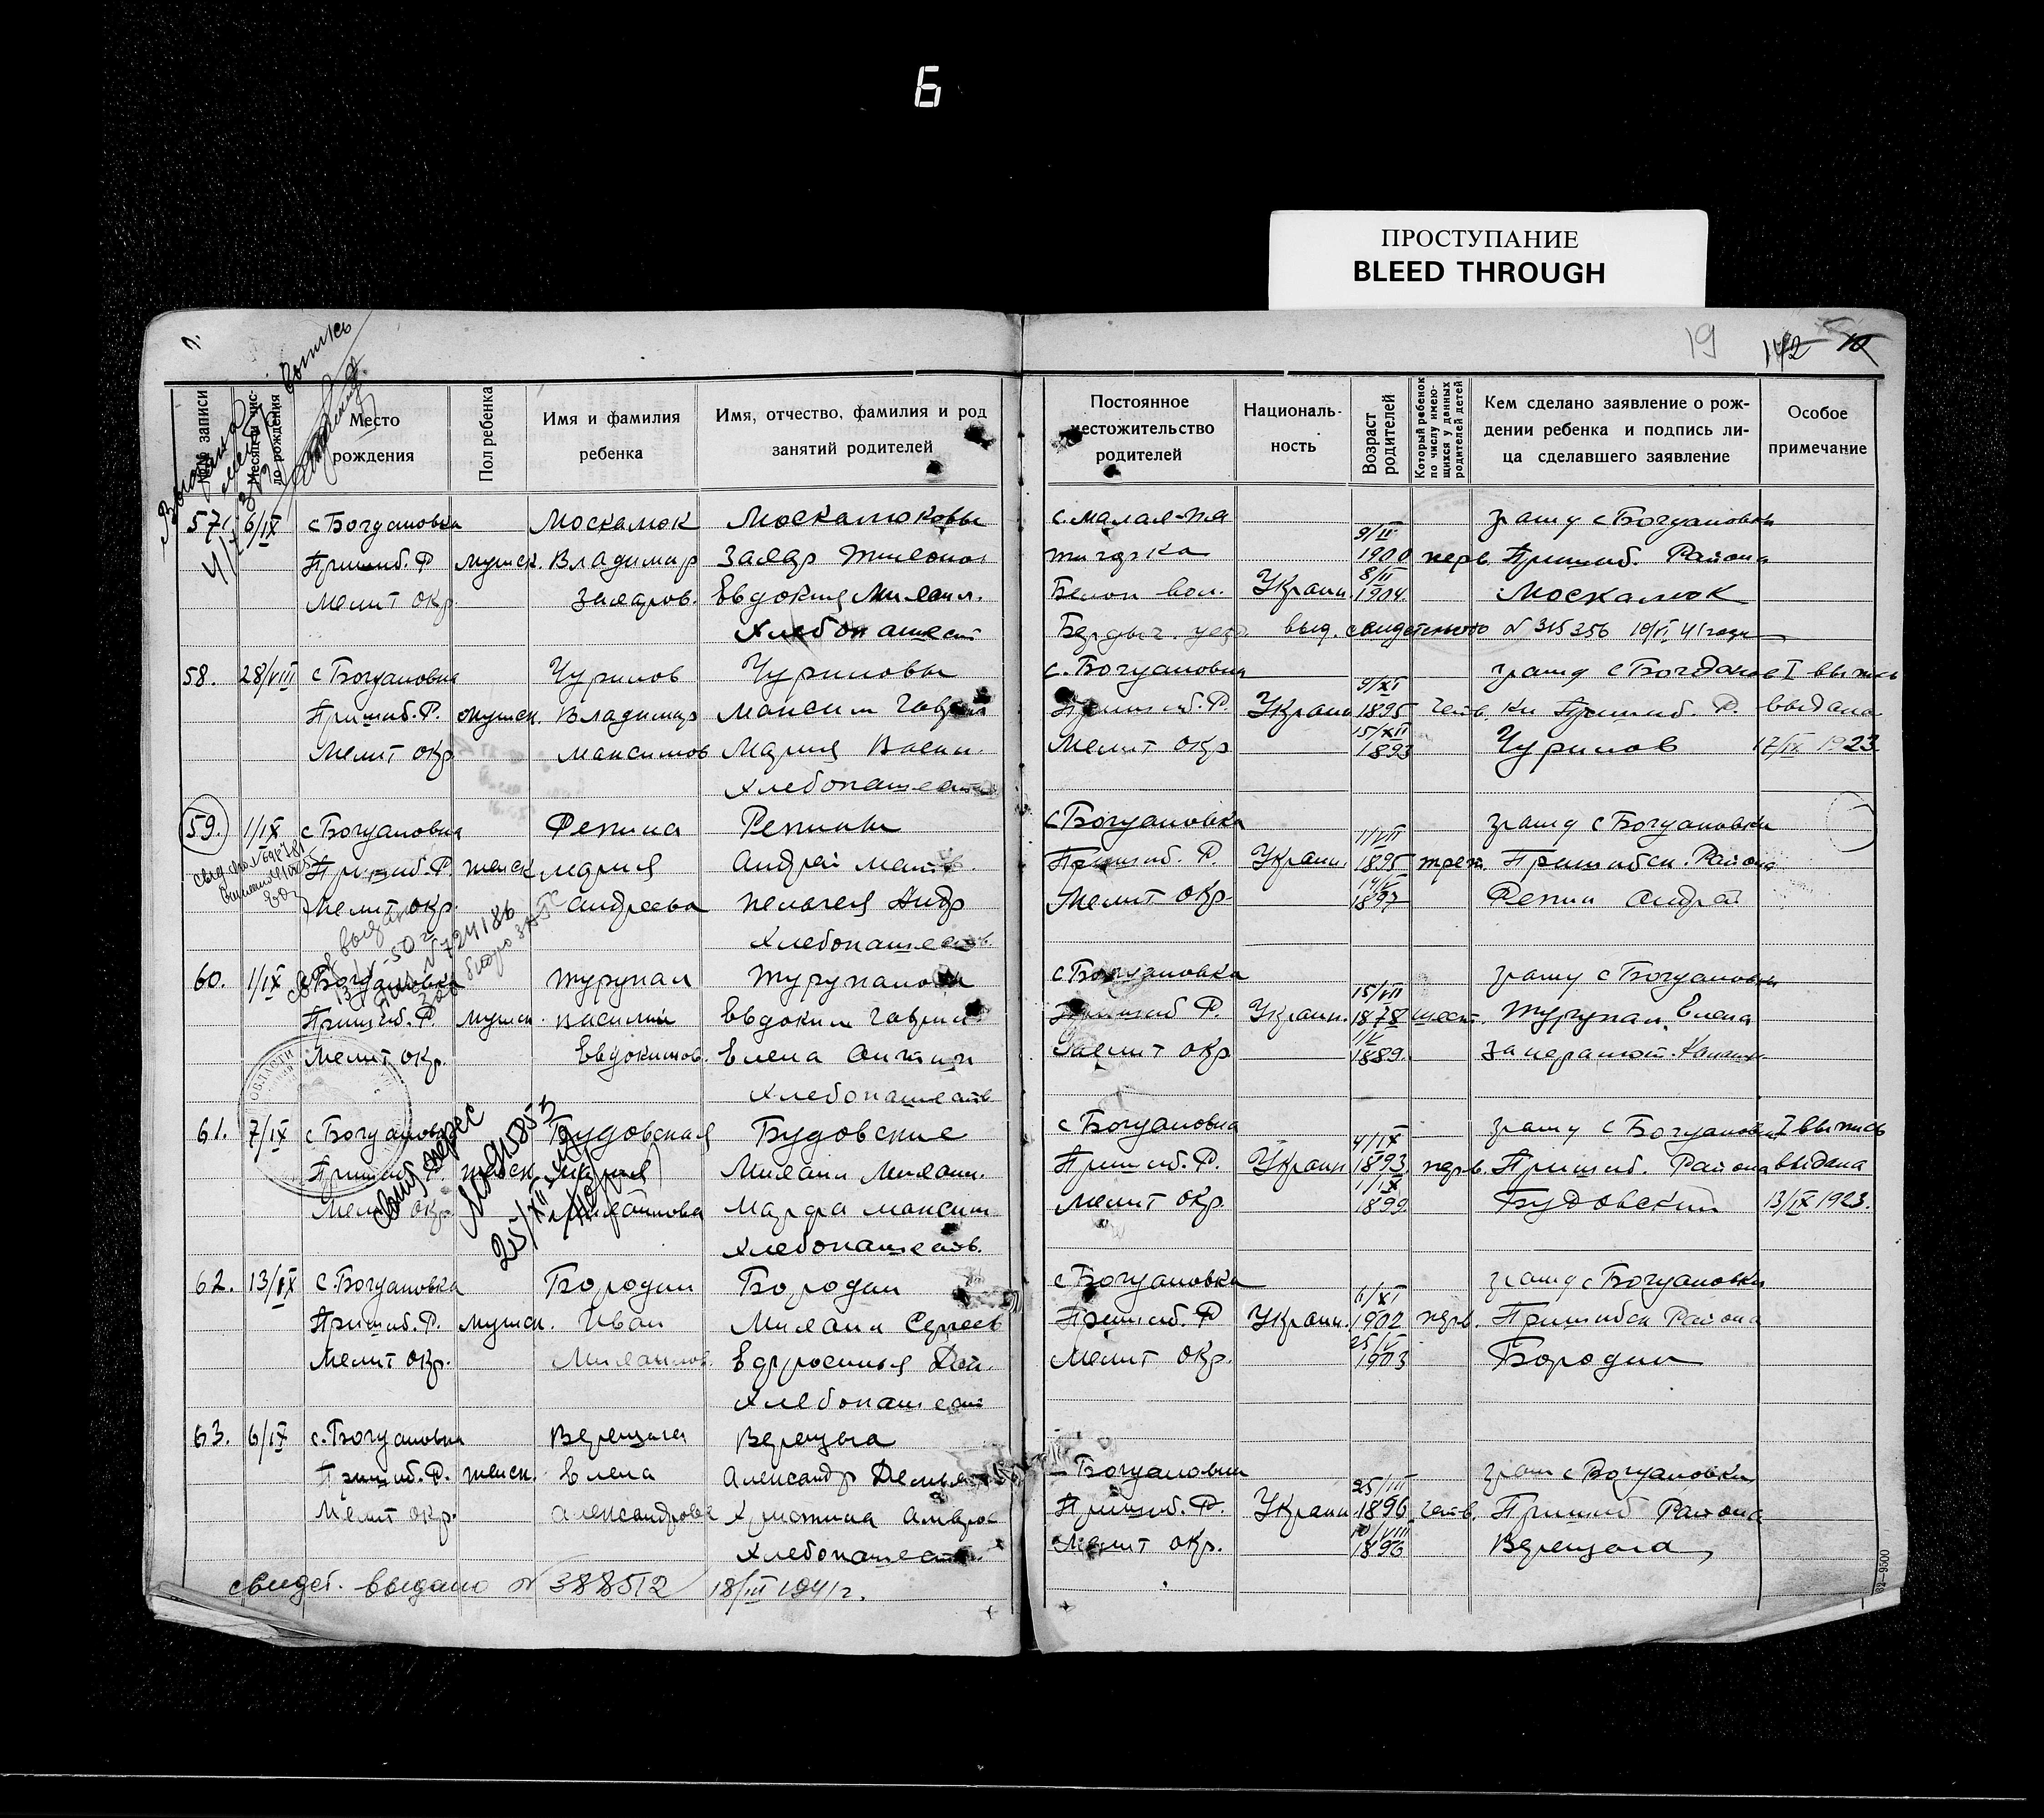 6
ПРОСТУПАНИЕ
BLEED THROUGH
19
142
№№ записи
Месяц и чис-
ло рождения
Место
рождения
Пол ребенка
Имя и фамилия
ребенка
Имя, отчество, фамилия и род
занятий родителей
Постоянное
местожительство
родителей
Националь-
ность
Возраст
родителей
Который ребенок
по числу имею-
щихся у данных
родителей детей
Кем сделано заявление о рож-
дении ребенка и подпись ли-
ца сделавшего заявление
Особое
примечание
57. 6/IX с Богдановка Москалюк Москалюковы с. Малая-Пя 9/II гражд с Богдановки
Пришиб. Р мужск. Владимир Захар тигорка 1900 перв. Пришиб. Района
Мелит окр. Захаров. Евдокия Михаил. Украин. 8/II 1904. Москалюк
Хлебопашест Бердыч. уезд выд. свидетельство № 315356 10/VI 41 года
58. 28/VIII с Богдановка Чурилов Чуриловы с. Богдановка 9/XI гражд с Богданов I выпись
Пришиб. Р. мужск. Владимир Максим Гаврил Пришиб. Р. Украин 1895 четв. ки Пришиб. Р. выдана
Мелит окр Максимов Мария Мелит окр 15/XII 1893 Чурилов 17/IX 1923
Хлебопашеств
59. 1/IX с Богдановка Репина Репины с Богдановка 1/VII гражд с Богдановки
Пришиб. Р. женск Мария Андрей Матв. Пришиб. Р. Украин. 1895 трет. Пришибск. Района
Мелит окр Андреева Пелагея Андр Мелит окр 1897 Репин Андрей
Хлебопашеств
60. 1/IX с Богдановка Турупал Турупаловы с Богдановка 15/VII гражд с Богдановки
Пришиб. Р. мужск. Василий Евдоким Гаврил Пришиб. Р. Украин. 1878 шест. Турупал Елена
Мелит окр. Евдокимов. Елена Мелит окр 1/V 1889. за неграмот.
Хлебопашеств
61. 7/IX с Богдановка Будовская Будовские с Богдановка 4/IX гражд с Богдановки I выпись
Пришиб. Р. женск Мария Михаил Михаил. Пришиб. Р. Украин 1893 перв. Пришиб. Района выдана
Мелит окр. Михайлова Марфа Максим Мелит окр. 1/IX 1899. Будовский 13/IX 1923.
Хлебопашеств.
62. 13/IX с. Богдановка Бородин Бородин с Богдановка 6/XI гражд с Богдановки
Пришиб. Р. мужск. Иван Михаил Сергеев Пришиб. Р Украин. 1902 перв. Пришибск Района
Мелит окр. Михаилов. Ефросинья Мелит окр. 25/V 1903 Бородин
Хлебопашест
63. 6/IX с. Богдановка Верещага Верещага
Пришиб. Р. женск. Елена Александр Демьян Богдановка 25/III граж с Богдановки
Мелит окр. Александрова Христина Амврос Пришиб. Р. Украин 1896 четв. Пришиб Района
Хлебопашеств. Мелит окр. 10/VIII 1896 Верещага
свидет. выдано № 388512 18/III 1941 г.